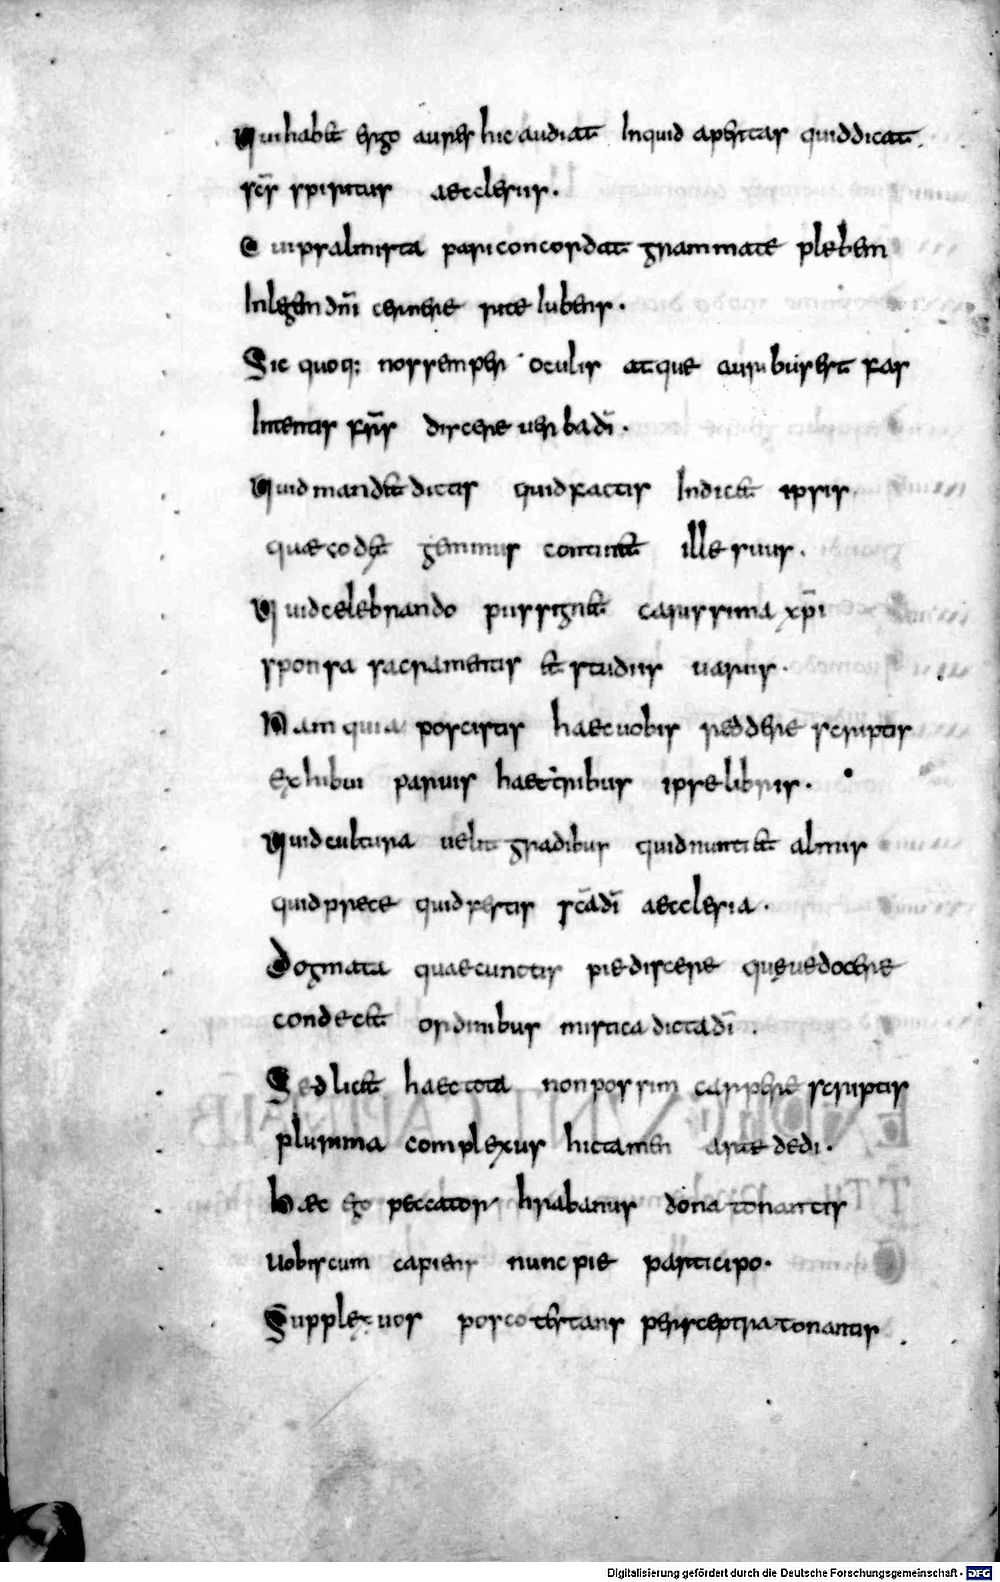 Qui habet ergo aures hic audiat Inquid apertas quid dicat
sc̄s spiritus aecclesiis.
Cui psalmista pari concordat grammate plebem
In legem dn̄i cernere rite lubens.
Sic quoq; nos semper oculis atque auribus est fas
Intentis frr̄s discere verba dī.
Quid mandet dictis quid factis Indicet ipsis
quae ço det geminus continet ille sinus.
Quid celebrando pus signet carissima xp̄i
sponsa sacramentis et studiis uariis.
Nam quia poscistis haec uobis reddere scriptis
exhibui paruis haec tribus ipse libris.
Quid cultura uelit gradibus quid nuntiet almis
quid prece quid festis sc̄a dī aecclesia.
Dogmata quae cunctis pie discere quęue docere
condecet ordinibus mistica dicta dī.
Sed licet haec tota non possim carpere scriptis
plurima complexus hic tamen arte dedi.
Haec ego peccator hrabanus dona tonantis
uobiscum capiens nunc pie participo.
Supplex uos posco testans per sceptra tonantis
Digitalisierung gefördert durch die Deutsche Forschungsgemeinschaft - DFG